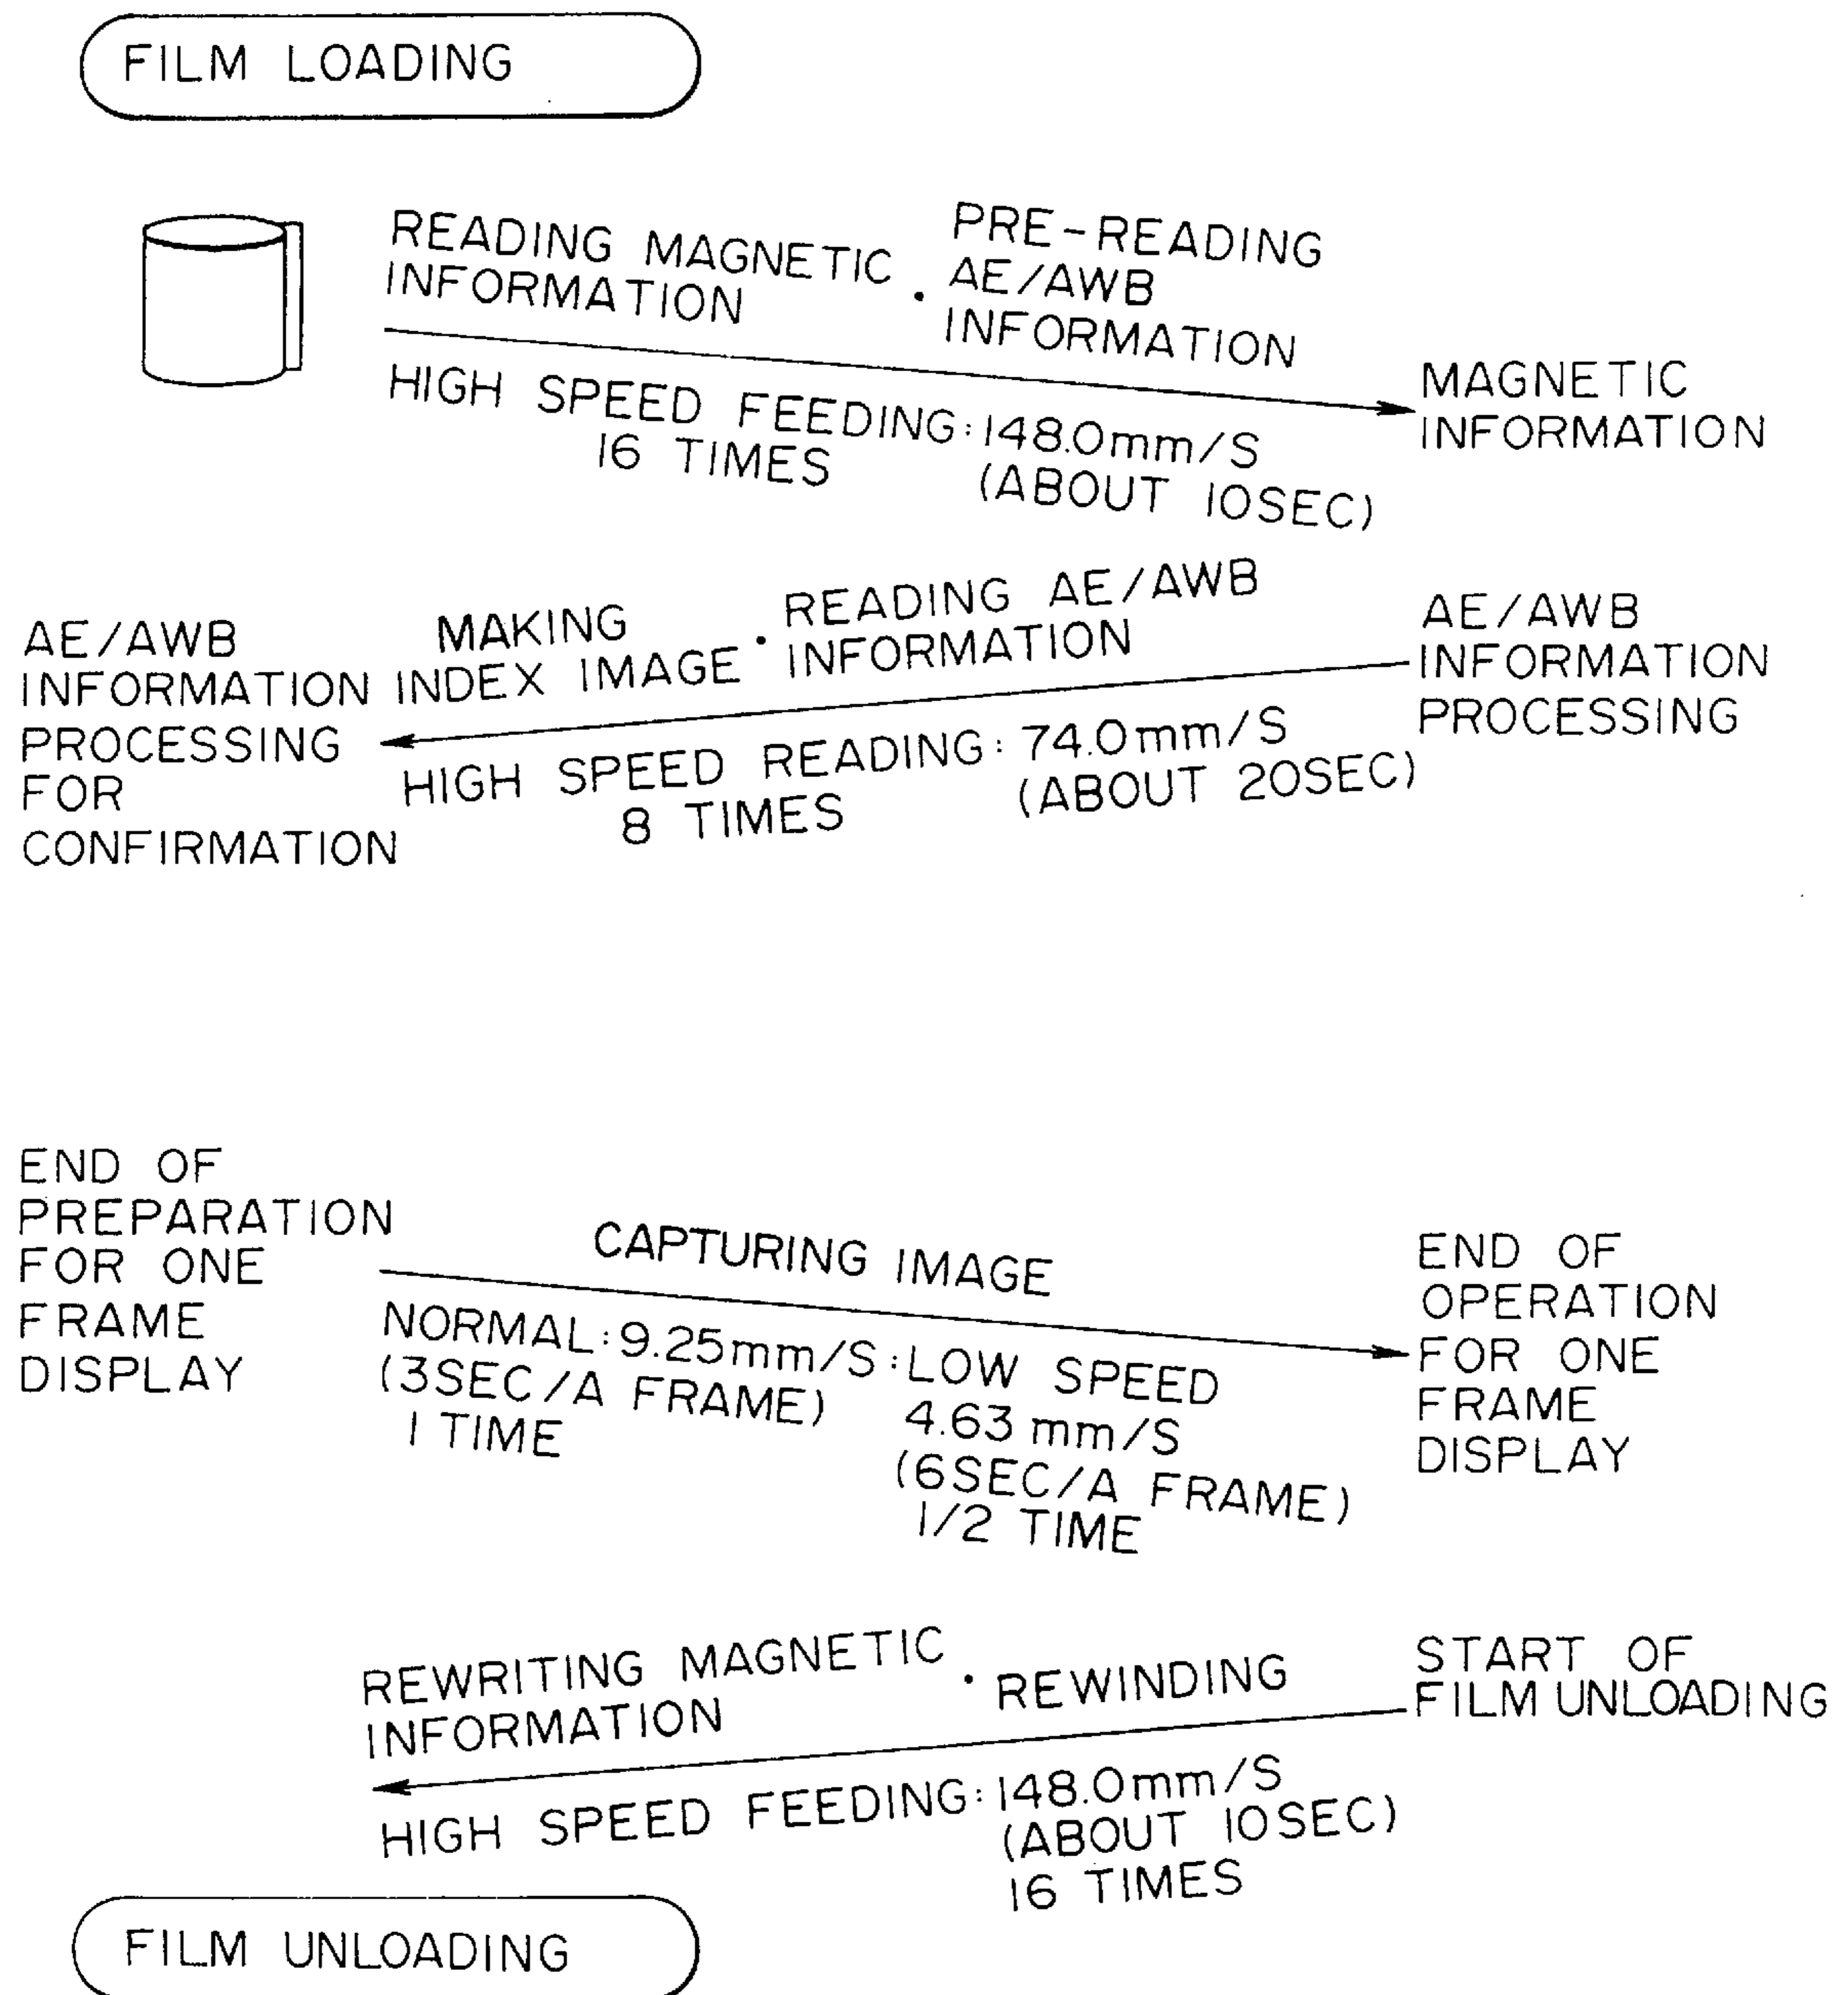 FILM LOADING
READING MAGNETIC
INFORMATION
· PRE-READING
AE/AWB
INFORMATION
HIGH SPEED FEEDING: 148.0mm/S
16 TIMES
(ABOUT 10SEC)
MAGNETIC
INFORMATION
AE/AWB
INFORMATION
PROCESSING
FOR
CONFIRMATION
MAKING
INDEX IMAGE
· READING AE/AWB
INFORMATION
HIGH SPEED READING: 74.0mm/S
8 TIMES
(ABOUT 20SEC)
AE/AWB
INFORMATION
PROCESSING
END OF
PREPARATION
FOR ONE
FRAME
DISPLAY
CAPTURING IMAGE
NORMAL: 9.25mm/S
(3SEC/A FRAME)
1 TIME
: LOW SPEED
4.63mm/S
(6SEC/A FRAME)
1/2 TIME
END OF
OPERATION
FOR ONE
FRAME
DISPLAY
REWRITING MAGNETIC
INFORMATION
· REWINDING
START OF
FILM UNLOADING
HIGH SPEED FEEDING: 148.0mm/S
(ABOUT 10SEC)
16 TIMES
FILM UNLOADING